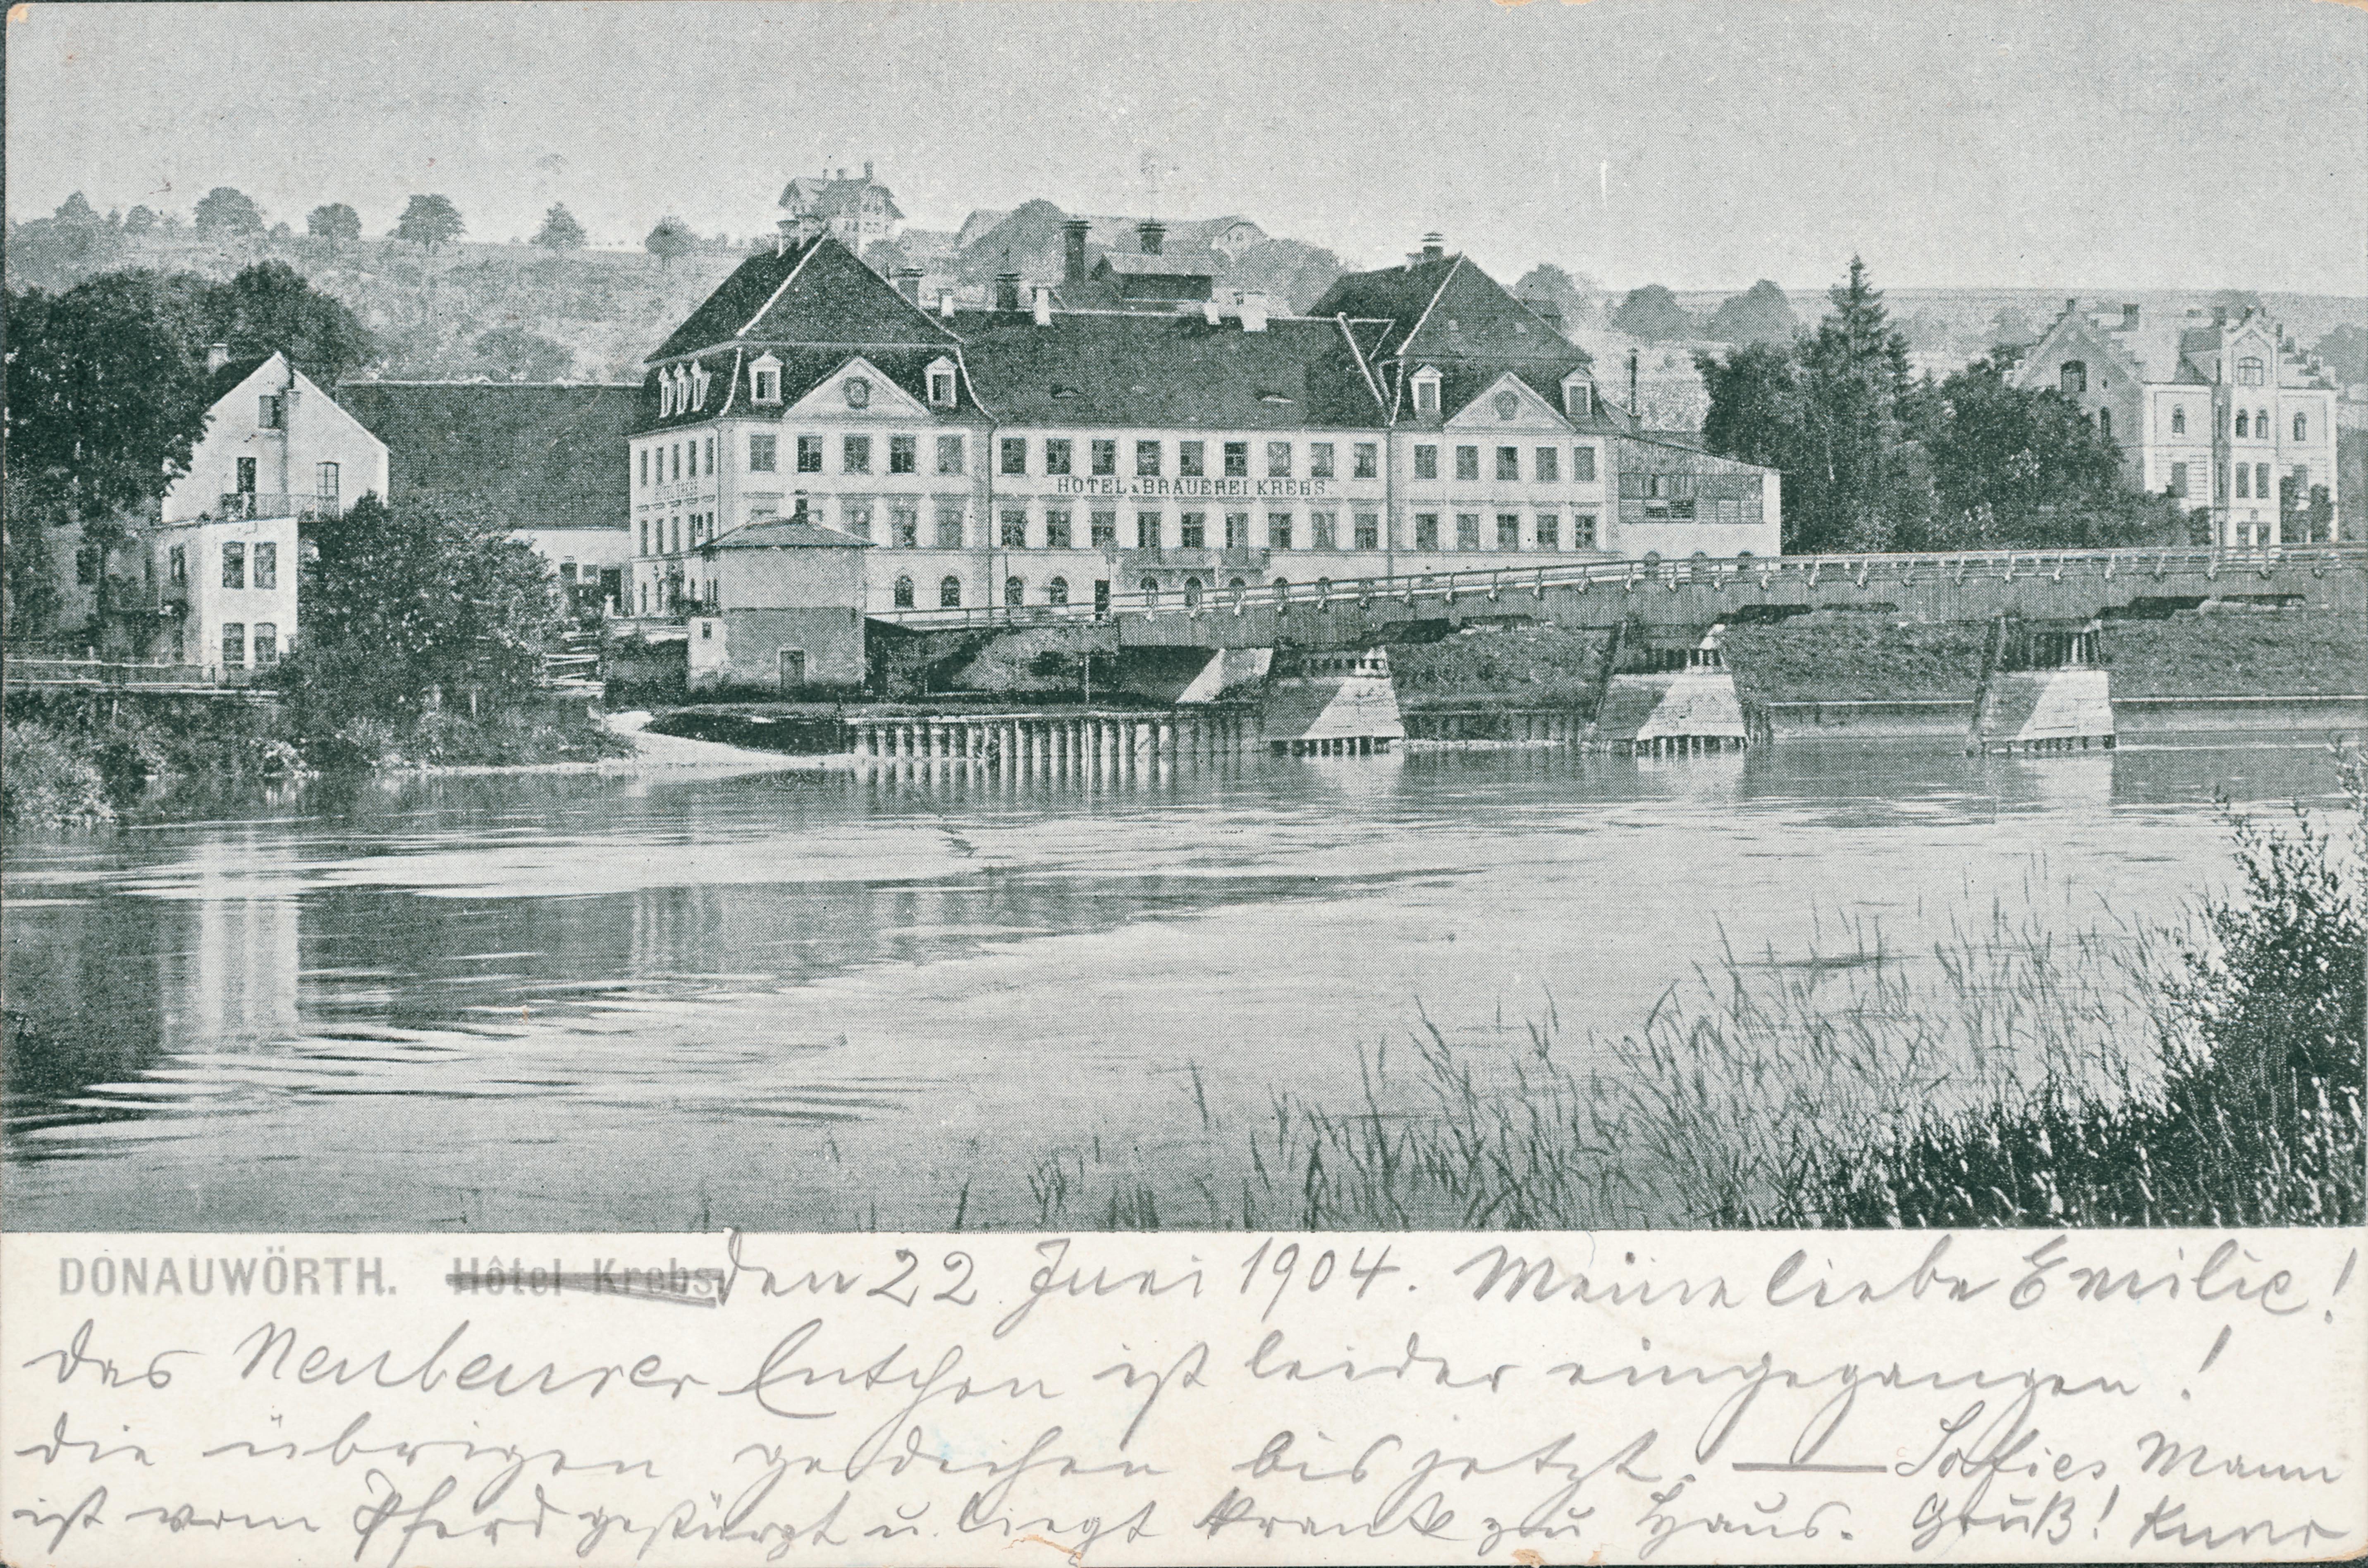 HOTEL & BRAUEREI KREBS.
DONAUWÖRTH. Hôtel Krebs. den 22. Juni 1904. Meine liebe Emilie!
das Neubeurer Entchen ist leider eingegangen!
die übrigen gedeihen bis jetzt. — Sofies Mann
ist vom Pferd gestürzt u. liegt krank zu Haus. Gruß!